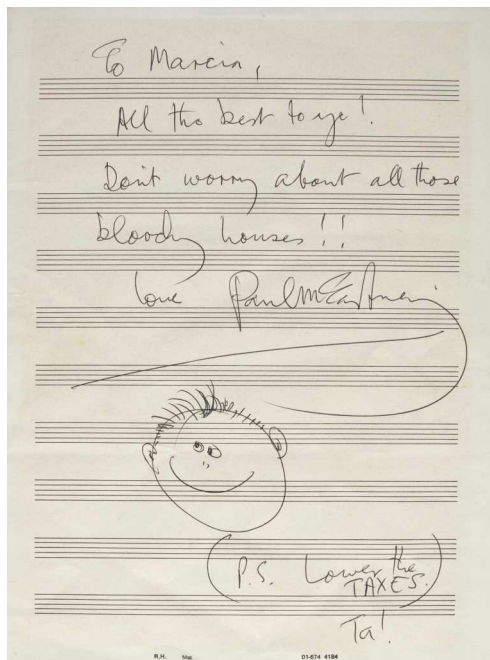 To Marcia,
All the best to ye!
Don't worry about all those
bloody houses!!
love Paul McCartney
(P.S. Lower the
TAXES.)
Ta!
R.H. Mat. 01-674 4184